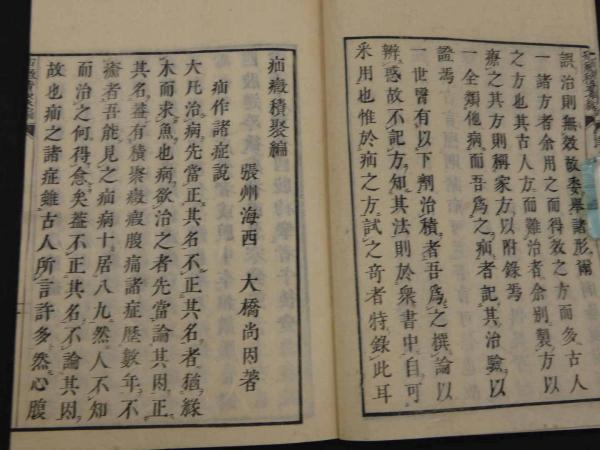 誤治則無效故委舉諸形爾
一諸方者余用之而得效之方而多古人
之方也其古人方而難治者余別製方以
療之其方則稱家方以附錄焉
一全類他病而吾爲之疝者記其治驗以
證焉
一世醫有以下劑治積者吾爲之撰論以
辨惑故不記方知其法則於衆書中自可
采用也惟於疝之方試之奇者特錄此耳
疝癥積聚編
張州海西 大橋尚因著
疝作諸症說
大凡治病先當正其名不正其名者猶緣
木而求魚也病欲治之者先當論其因正
其名蓋有積聚癥瘕腹痛諸症歷數年不
瘉者吾能見之疝病十居八九然人不知
而治之何得愈矣蓋不正其名不論其因
故也疝之諸症雖古人所言許多然心腹